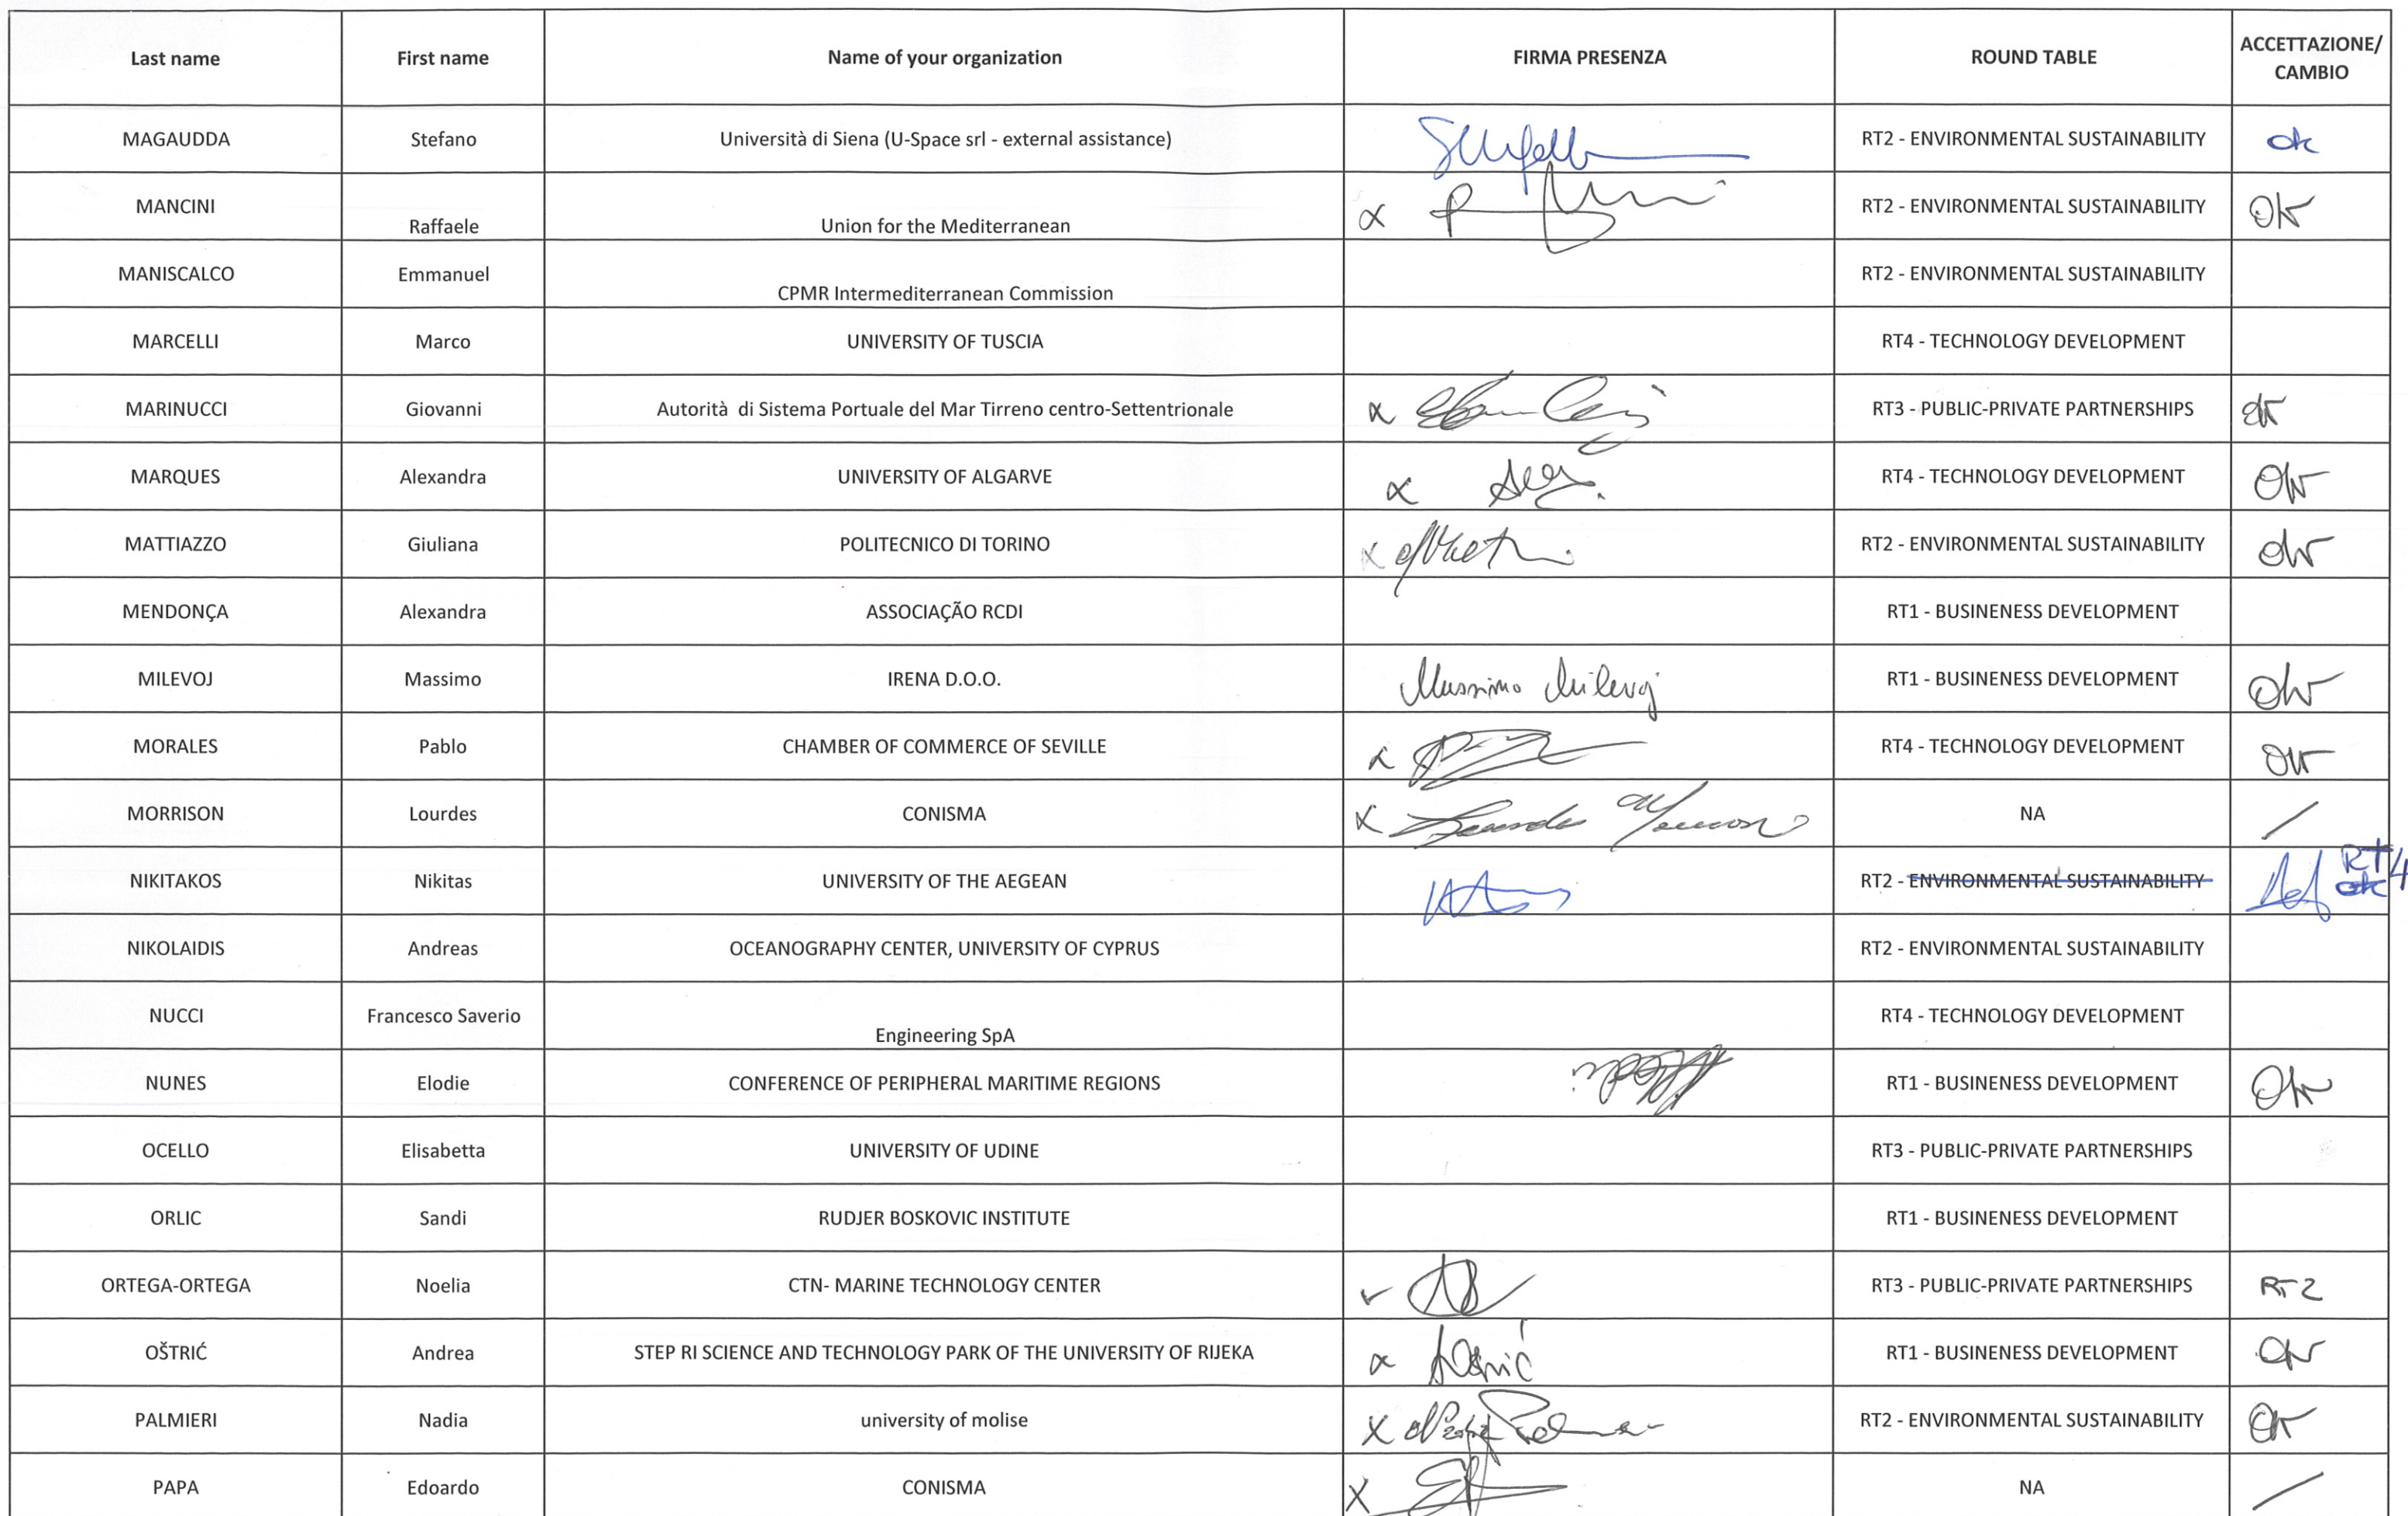 Last name First name Name of your organization FIRMA PRESENZA ROUND TABLE ACCETTAZIONE/
CAMBIO
MAGAUDDA Stefano Università di Siena (U-Space srl - external assistance) RT2 - ENVIRONMENTAL SUSTAINABILITY ok
MANCINI Raffaele Union for the Mediterranean RT2 - ENVIRONMENTAL SUSTAINABILITY OK
MANISCALCO Emmanuel CPMR Intermediterranean Commission RT2 - ENVIRONMENTAL SUSTAINABILITY
MARCELLI Marco UNIVERSITY OF TUSCIA RT4 - TECHNOLOGY DEVELOPMENT
MARINUCCI Giovanni Autorità di Sistema Portuale del Mar Tirreno centro-Settentrionale RT3 - PUBLIC-PRIVATE PARTNERSHIPS ok
MARQUES Alexandra UNIVERSITY OF ALGARVE RT4 - TECHNOLOGY DEVELOPMENT OK
MATTIAZZO Giuliana POLITECNICO DI TORINO RT2 - ENVIRONMENTAL SUSTAINABILITY OK
MENDONÇA Alexandra ASSOCIAÇÃO RCDI RT1 - BUSINENESS DEVELOPMENT
MILEVOJ Massimo IRENA D.O.O. Massimo Milevoj RT1 - BUSINENESS DEVELOPMENT OK
MORALES Pablo CHAMBER OF COMMERCE OF SEVILLE RT4 - TECHNOLOGY DEVELOPMENT OK
MORRISON Lourdes CONISMA Lourdes Morrison NA /
NIKITAKOS Nikitas UNIVERSITY OF THE AEGEAN RT2 - ENVIRONMENTAL SUSTAINABILITY RT4 ok
NIKOLAIDIS Andreas OCEANOGRAPHY CENTER, UNIVERSITY OF CYPRUS RT2 - ENVIRONMENTAL SUSTAINABILITY
NUCCI Francesco Saverio Engineering SpA RT4 - TECHNOLOGY DEVELOPMENT
NUNES Elodie CONFERENCE OF PERIPHERAL MARITIME REGIONS RT1 - BUSINENESS DEVELOPMENT OK
OCELLO Elisabetta UNIVERSITY OF UDINE RT3 - PUBLIC-PRIVATE PARTNERSHIPS
ORLIC Sandi RUDJER BOSKOVIC INSTITUTE RT1 - BUSINENESS DEVELOPMENT
ORTEGA-ORTEGA Noelia CTN- MARINE TECHNOLOGY CENTER RT3 - PUBLIC-PRIVATE PARTNERSHIPS RT2
OŠTRIĆ Andrea STEP RI SCIENCE AND TECHNOLOGY PARK OF THE UNIVERSITY OF RIJEKA RT1 - BUSINENESS DEVELOPMENT OK
PALMIERI Nadia university of molise X RT2 - ENVIRONMENTAL SUSTAINABILITY OK
PAPA Edoardo CONISMA X NA /